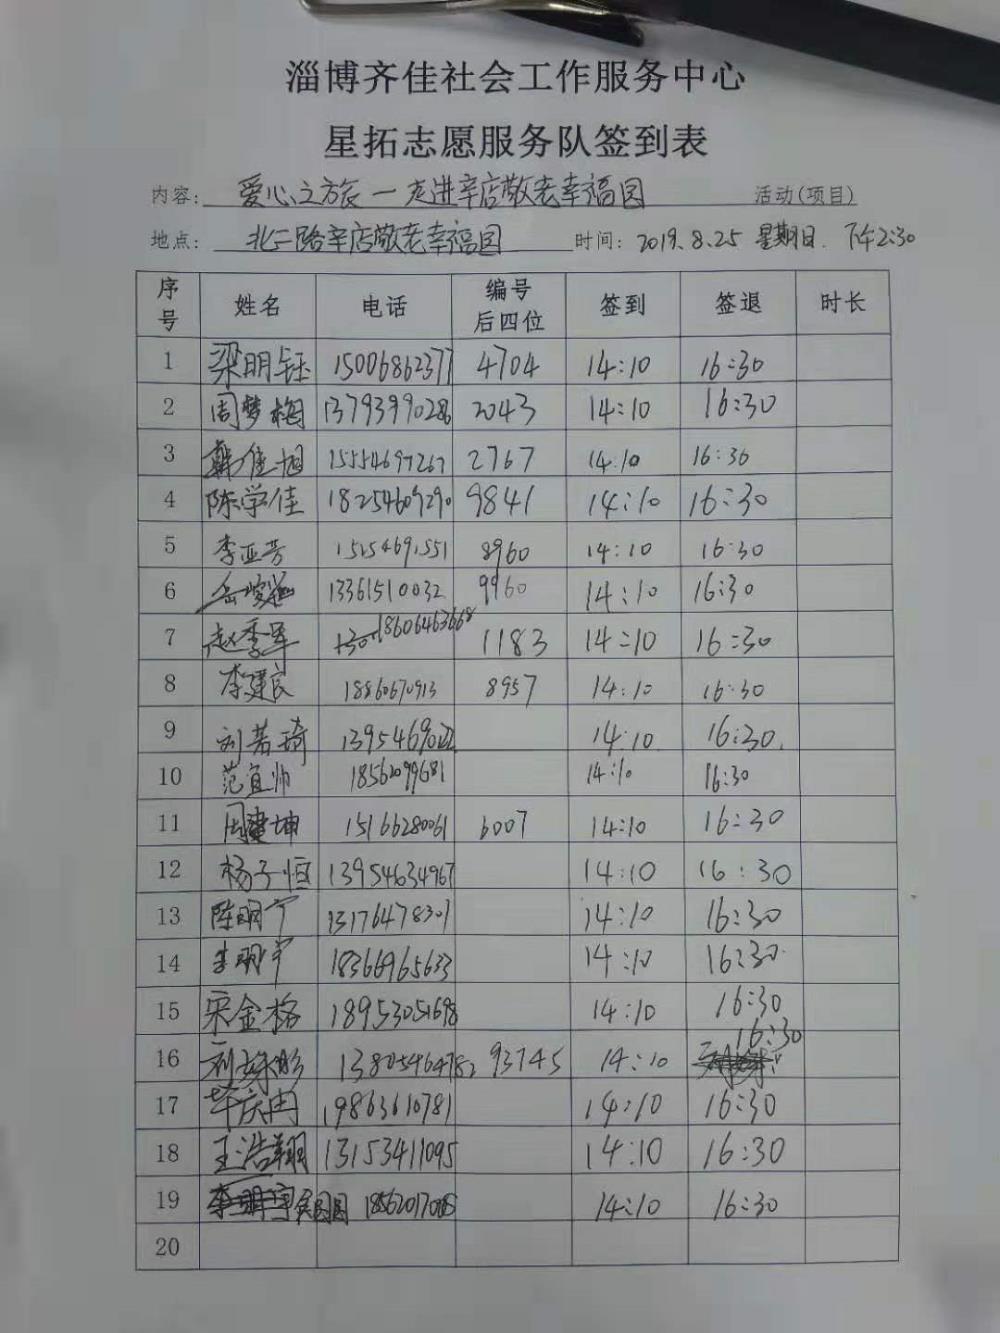 淄博齐佳社会工作服务中心
星拓志愿服务队签到表
内容: 爱心之旅一走进辛店敬老幸福园 活动(项目)
地点: 北二路辛店敬老幸福园 时间: 2019.8.25 星期日. 下午2:30
序号 姓名 电话 编号后四位 签到 签退 时长
1 梁明钰 15006862377 4704 14:10 16:30
2 周梦梅 13793990286 2043 14:10 16:30
3 韩佳旭 15554697267 2767 14:10 16:30
4 陈学佳 18254609290 9841 14:10 16:30
5 李亚芳 15254691551 8960 14:10 16:30
6 13361510032 9960 14:10 16:30
7 赵季军 18606463668 1183 14:10 16:30
8 李建良 18860670913 8957 14:10 16:30
9 刘若琦 14:10 16:30
10 范宜帅 18562099681 14:10 16:30
11 周建坤 15166280061 6007 14:10 16:30
12 杨子恒 13954634967 14:10 16:30
13 陈明宁 13176478301 14:10 16:30
14 李明宇 18366965633 14:10 16:30
15 宋金格 18953051698 14:10 16:30
16 13805464782 93745 14:10 16:30
17 毕庆冉 19863610781 14:10 16:30
18 王浩翔 13153411095 14:10 16:30
19 14:10 16:30
20